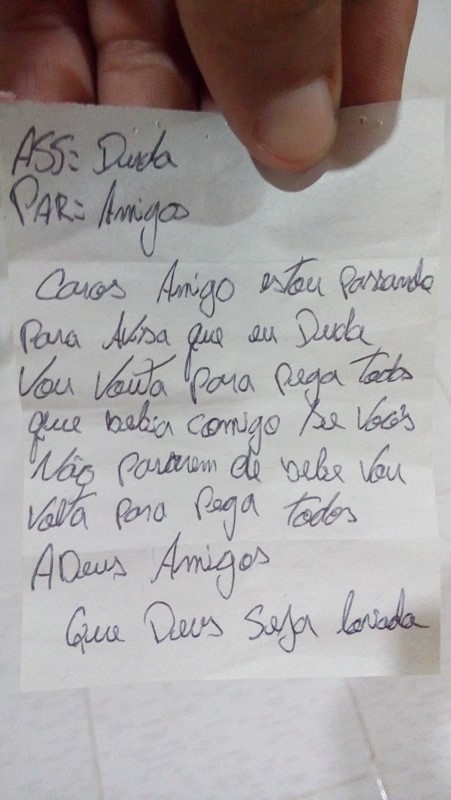 ASS: Duda
PAR: Amigos
Caros Amigo estou passando
para Avisa que eu Duda
Vou Vouta para pega todos
que bebia comigo se Vocês
Não pararem de bebe Vou
Volta para pega todos
ADeus Amigos
Que Deus Seja lovado